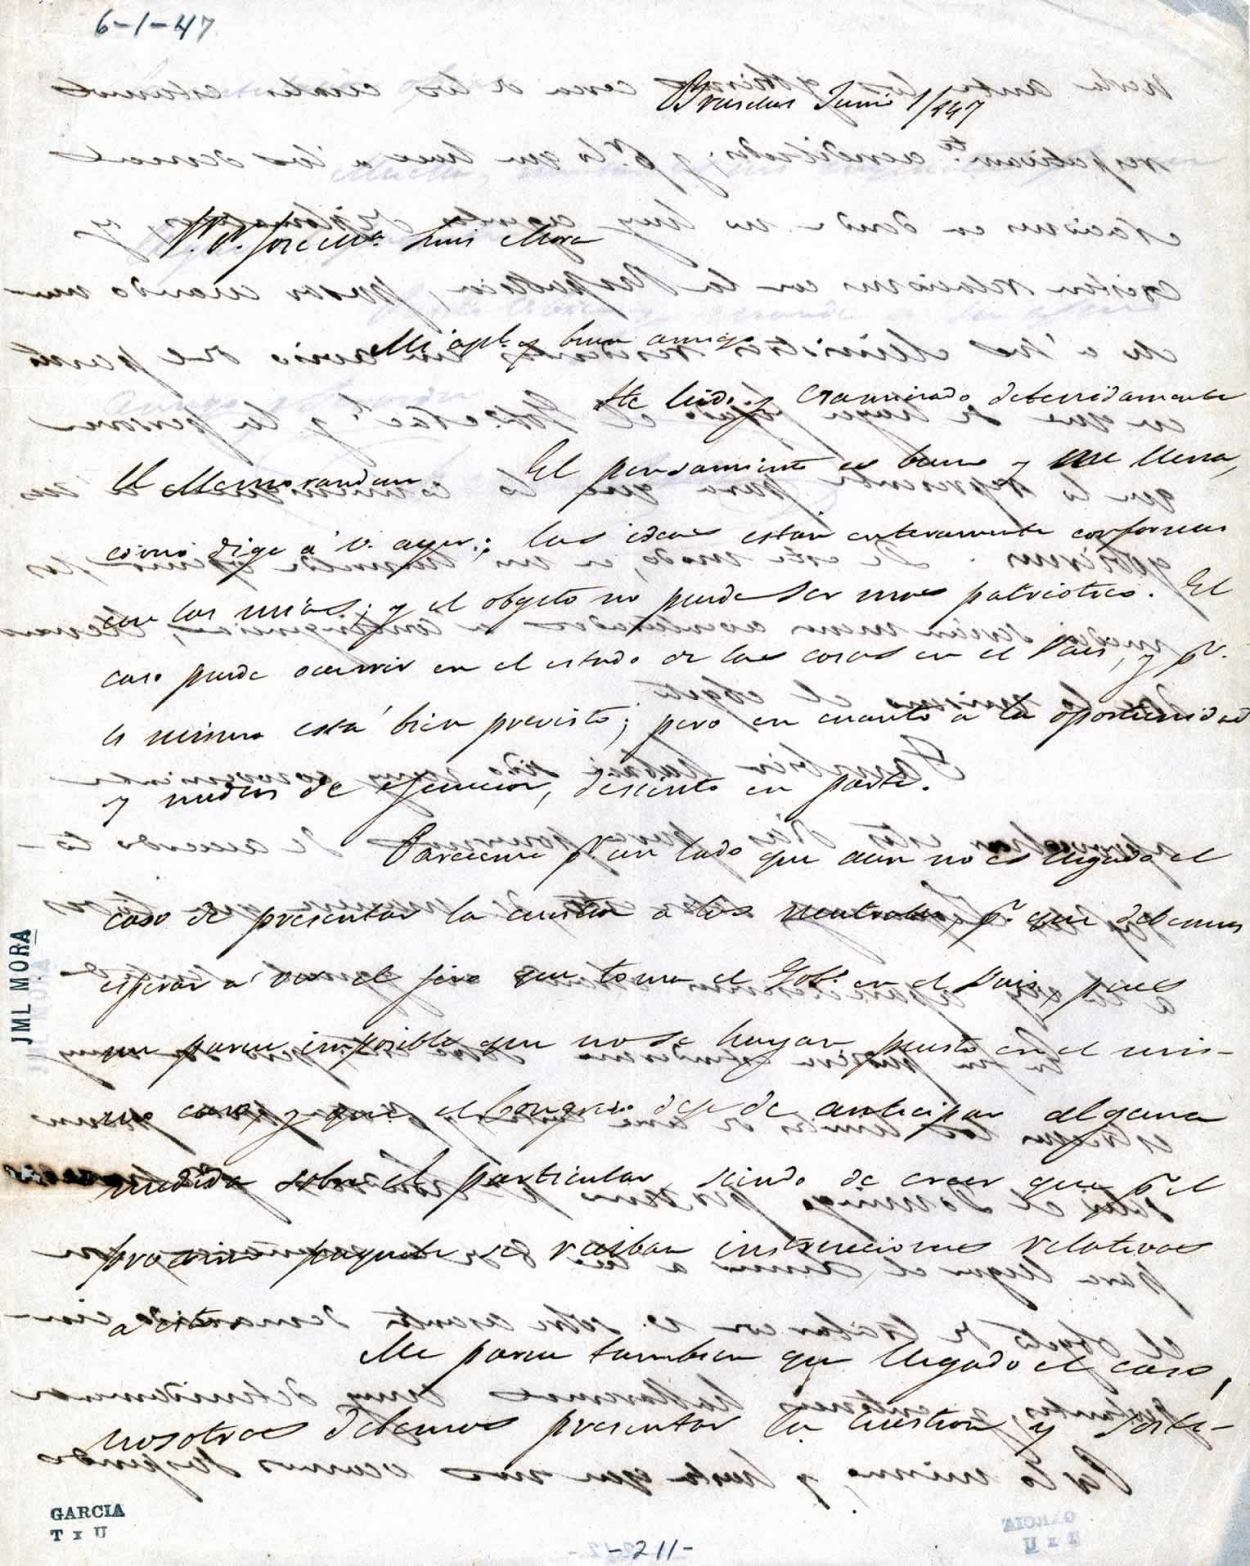 6-1-47
Bruselas Junio 1/847
S. D. José Ma. Luis Mora
Mi apble. y buen amigo
He leido y examinado detenidamente
el Memorandum. El pensamiento es bueno y me llena,
como dige a V. ayer; las ideas están enteramente conformes
con las mias; y el obgeto no puede ser mas patriotico. El
caso puede ocurrir en el estado de las cosas en el Pais, y pr.
lo mismo está bien previsto; pero en cuanto a la oportunidad
y medios de ejecucion, disiento en parte.
Pareceme pr. un lado que aun no es llegado el
caso de presentar la cuestion a los neutrales, pr. que debemos
esperar a ver el jiro que toma el Gobo. en el Pais, pues
me parece imposible que no se hayan puesto en el mis-
mo caso y que el Congreso deje de anticipar alguna
medida sobre el particular, siendo de creer que pr. el
procsimo paquete se reciban instrucciones relativas
a esto.
Me parece tambien que llegado el caso,
nosotros debemos presentar la cuestion y soste-
JML MORA
GARCIA
T x U
-211-